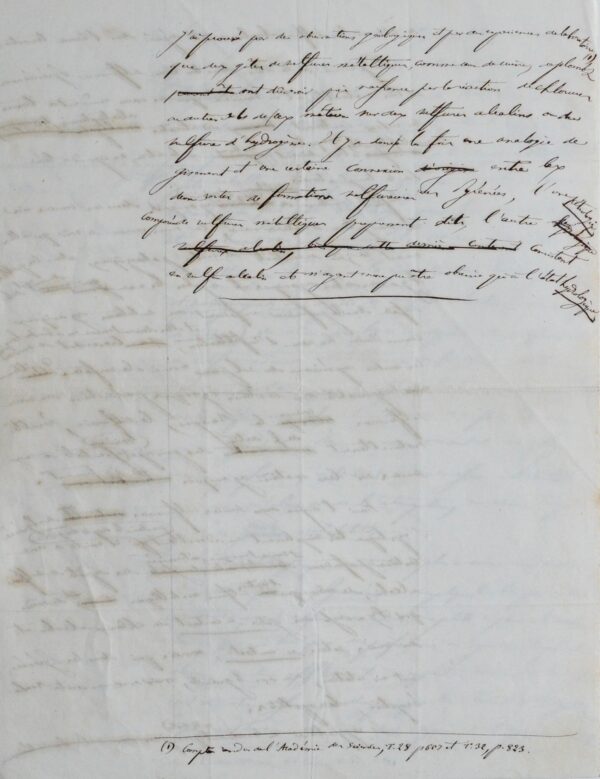 J'ai prouvé par des observations géologiques et par des expériences de laboratoire (1)
que des gîtes de sulfures métalliques, comme ceux de cuivre, de plomb &
ont dû avoir pris naissance par la réaction de chlorures
ou autres sels de ces métaux sur des sulfures alcalins ou du
sulfure d'hydrogène. Il y a donc à la fois une analogie de
gisement et une certaine connexion entre les
deux sortes de formations sulfureuses des Pyrénées, l'une
composée de sulfures métalliques proprement dits, l'autre
sulfures alcalins, lorsque cette dernière consistant
en sulfures alcalins et n'ayant encore pu être observée qu'à l'état hydrologique
(1) Comptes rendus de l'Académie des Sciences, T. 28 p 607 et T. 32, p. 823.